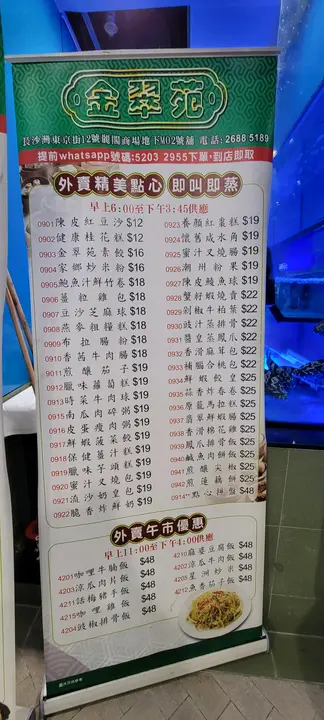 金翠苑
長沙灣東京街12號麗閣商場地下M02號舖 電話:2688 5189
提前whatsapp號碼:5203 2955下單,到店即取
外賣精美點心 即叫即蒸
早上6:00至下午3:45供應
0901陳皮紅豆沙 $12
0902健康桂花糕 $12
0903金翠苑素餃 $16
0904家鄉炒米粉 $16
0905鮑魚汁鮮竹卷 $18
0906薑粒雞包 $18
0907豆沙芝麻球 $18
0908燕麥粗糧糕 $18
0909布拉腸粉 $18
0910香茜牛肉腸 $18
9011煎釀茄子 $19
0912臘味蘿蔔糕 $19
0913時菜牛肉球 $19
0915南瓜肉碎粥 $19
0916皮蛋瘦肉粥 $19
0917鮮蝦菠菜餃 $19
0918保健薑汁糕 $19
0919臘味芋頭糕 $19
0920蜜汁叉燒包 $19
0921流沙奶皇包 $19
0922脆香炸鮮奶 $19
0923養顏紅棗糕 $19
0924懷舊咸水角 $19
0925蜜汁叉燒腸 $19
0926潮州粉果 $19
0927陳皮鯪魚球 $19
0928蟹籽蝦燒賣 $22
0929剁椒牛柏葉 $22
0930豉汁蒸排骨 $22
0931醬皇蒸鳳爪 $22
0932香滑麻茸包 $22
0933補腦合桃包 $22
0934鮮蝦餃皇 $25
0935蒜香炸春卷 $25
0936原籠馬拉糕 $25
0937翡翠鮮蝦腸 $25
0938香滑棉花雞 $25
0939鳳爪排骨飯 $25
0940鹹魚肉餅飯 $25
0941煎釀尖椒 $25
0942煎蓮藕餅 $25
0914**點心拼盤 $48
外賣午市優惠
早上11:00至下午4:00供應
4201咖哩牛腩飯 $48
4203涼瓜肉片飯 $48
4211話梅豬手飯 $48
4215咖哩雞飯 $48
4204豉椒排骨飯 $48
4210麻婆豆腐飯 $48
4202涼瓜牛肉飯 $48
4208星洲炒米 $48
4212魚香茄子飯 $48